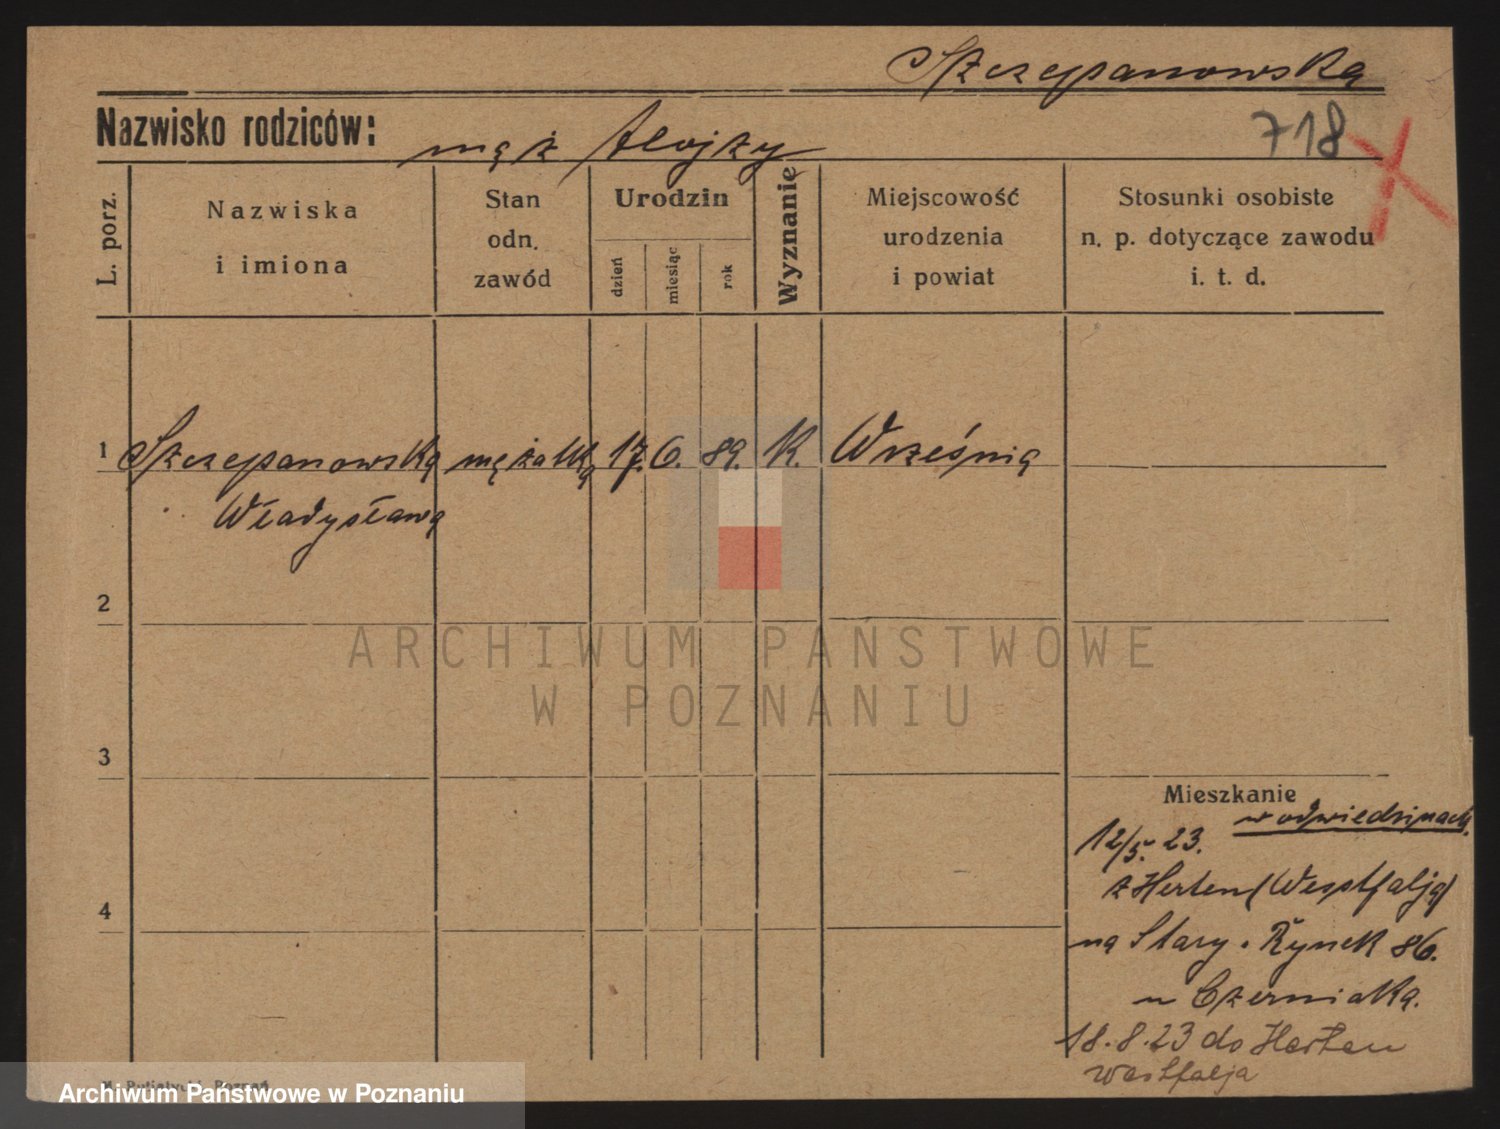 Szczepanowska
Nazwisko rodziców: mąż Alojzy
718
L. porz.
Nazwiska
i imiona
Stan
odn.
zawód
Urodzin
dzień
miesiąc
rok
Wyznanie
Miejscowość
urodzenia
i powiat
Stosunki osobiste
n. p. dotyczące zawodu
i. t. d.
1 Szczepanowska mężatka 17. 6. 89. K. Września
Władysława
2
3
4
Mieszkanie
w odwiedzinach.
12/5. 23.
z Herten (Westfalja)
na Stary Rynek 86.
u Czerniaka.
18.8.23 do Herten
Westfalja
ARCHIWUM PAŃSTWOWE
W POZNANIU
Archiwum Państwowe w Poznaniu